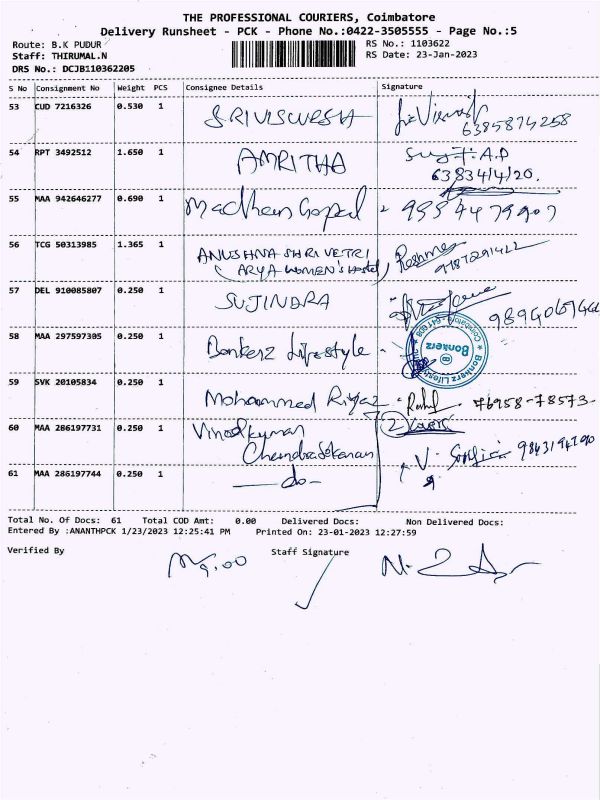 THE PROFESSIONAL COURIERS, Coimbatore
Delivery Runsheet - PCK - Phone No.:0422-3505555 - Page No.:5
Route: B.K PUDUR
Staff: THIRUMAL.N
DRS No.: DCJB110362205
RS No.: 1103622
RS Date: 23-Jan-2023
S No Consignment No Weight PCS Consignee Details Signature
53 CUD 7216326 0.530 1 SRIVISWESH
6385874258
54 RPT 3492512 1.650 1 AMRITHA A.P
63834/4/20.
55 MAA 942646277 0.690 1 Madhan Gopal
56 TCG 50313985 1.365 1 ANUSHNA SHRI VETRI Reshma
(ARYA WOMEN'S Hostel)
57 DEL 910085807 0.250 1 SUJINDRA
58 MAA 297597305 0.250 1 Bonkerz Lifestyle - Bonkerz
59 SVK 20105834 0.250 1 Mohammed Riyaz - Rahul 76958-78573
60 MAA 286197731 0.250 1 Vinodkumar 2 Covers
Chendrasekanan V. 9843194790
61 MAA 286197744 0.250 1 -do-
Total No. Of Docs: 61 Total COD Amt: 0.00 Delivered Docs: Non Delivered Docs:
Entered By :ANANTHPCK 1/23/2023 12:25:41 PM Printed On: 23-01-2023 12:27:59
Verified By Staff Signature